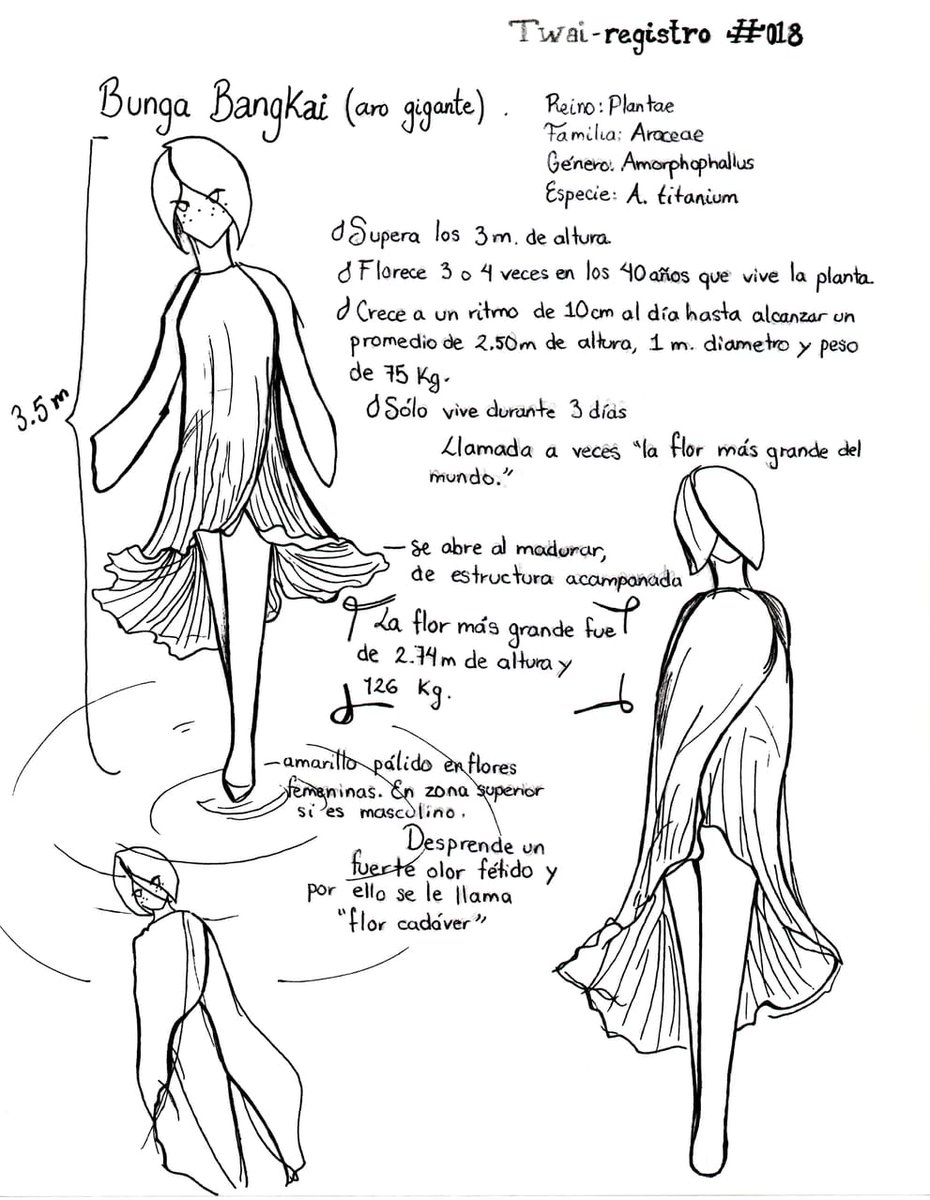 Twai-registro #018
Bunga Bangkai (aro gigante).
Reino: Plantae
Familia: Araceae
Género: Amorphophallus
Especie: A. titanium
Supera los 3 m. de altura.
Florece 3 o 4 veces en los 40 años que vive la planta.
Crece a un ritmo de 10cm al día hasta alcanzar un
promedio de 2.50m de altura, 1 m. diametro y peso
de 75 Kg.
Sólo vive durante 3 días
Llamada a veces "la flor más grande del
mundo."
3.5 m
se abre al madurar,
de estructura acampanada
La flor más grande fue
de 2.74m de altura y
126 Kg.
amarillo pálido en flores
femeninas. En zona superior
si es masculino.
Desprende un
fuerte olor fétido y
por ello se le llama
"flor cadáver"